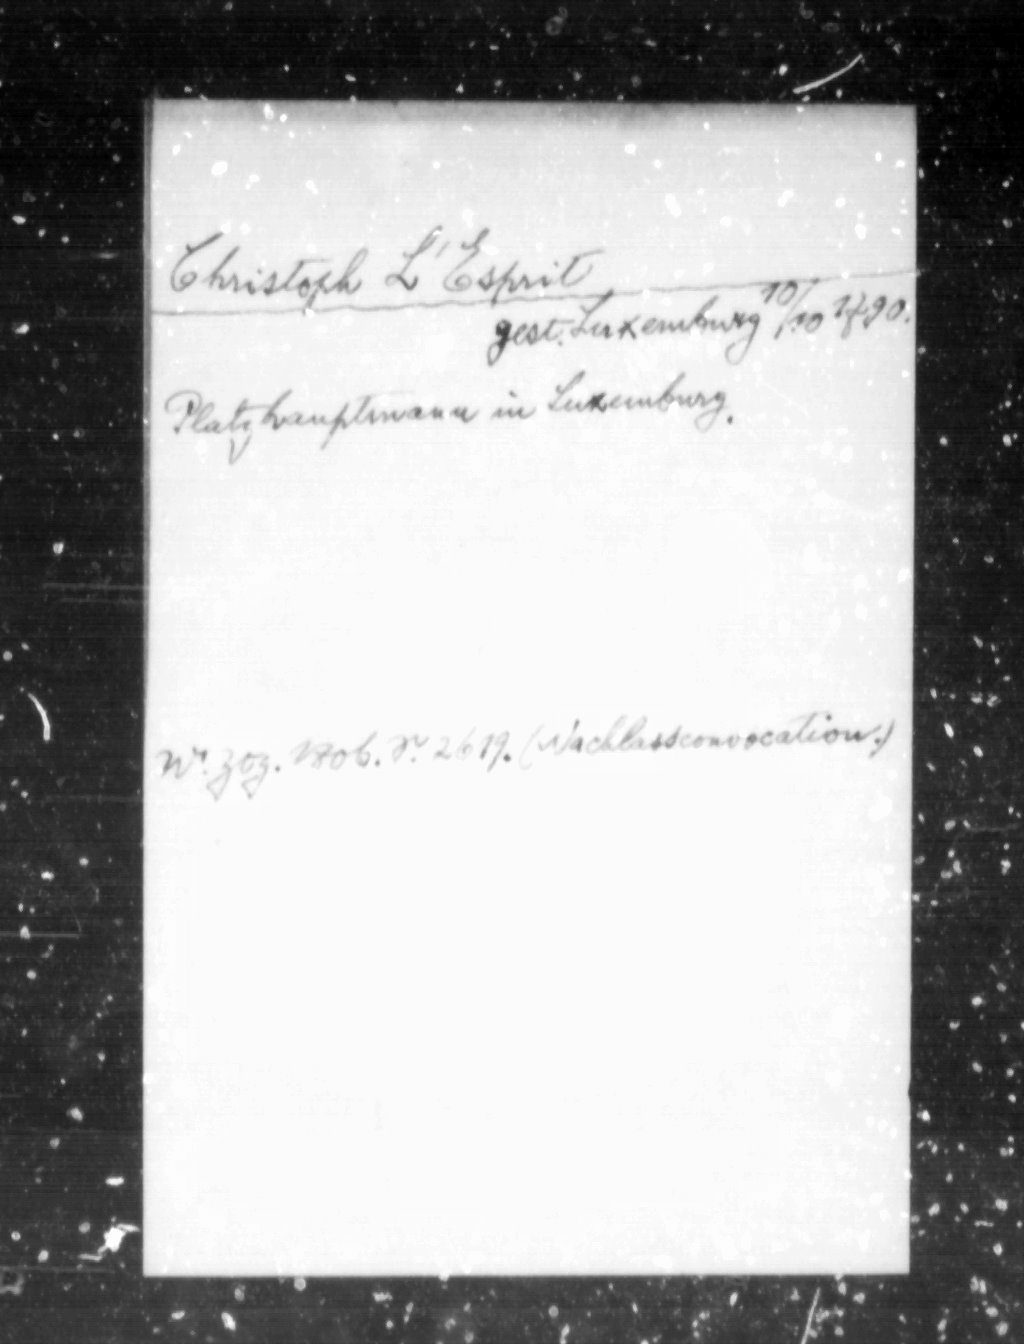 Christoph L'Esprit
gest. Luxemburg 10/10 1790.
Platzhauptmann in Luxemburg.
Wr. Ztg. 1806. S. 2619. (Nachlassconvocation.)